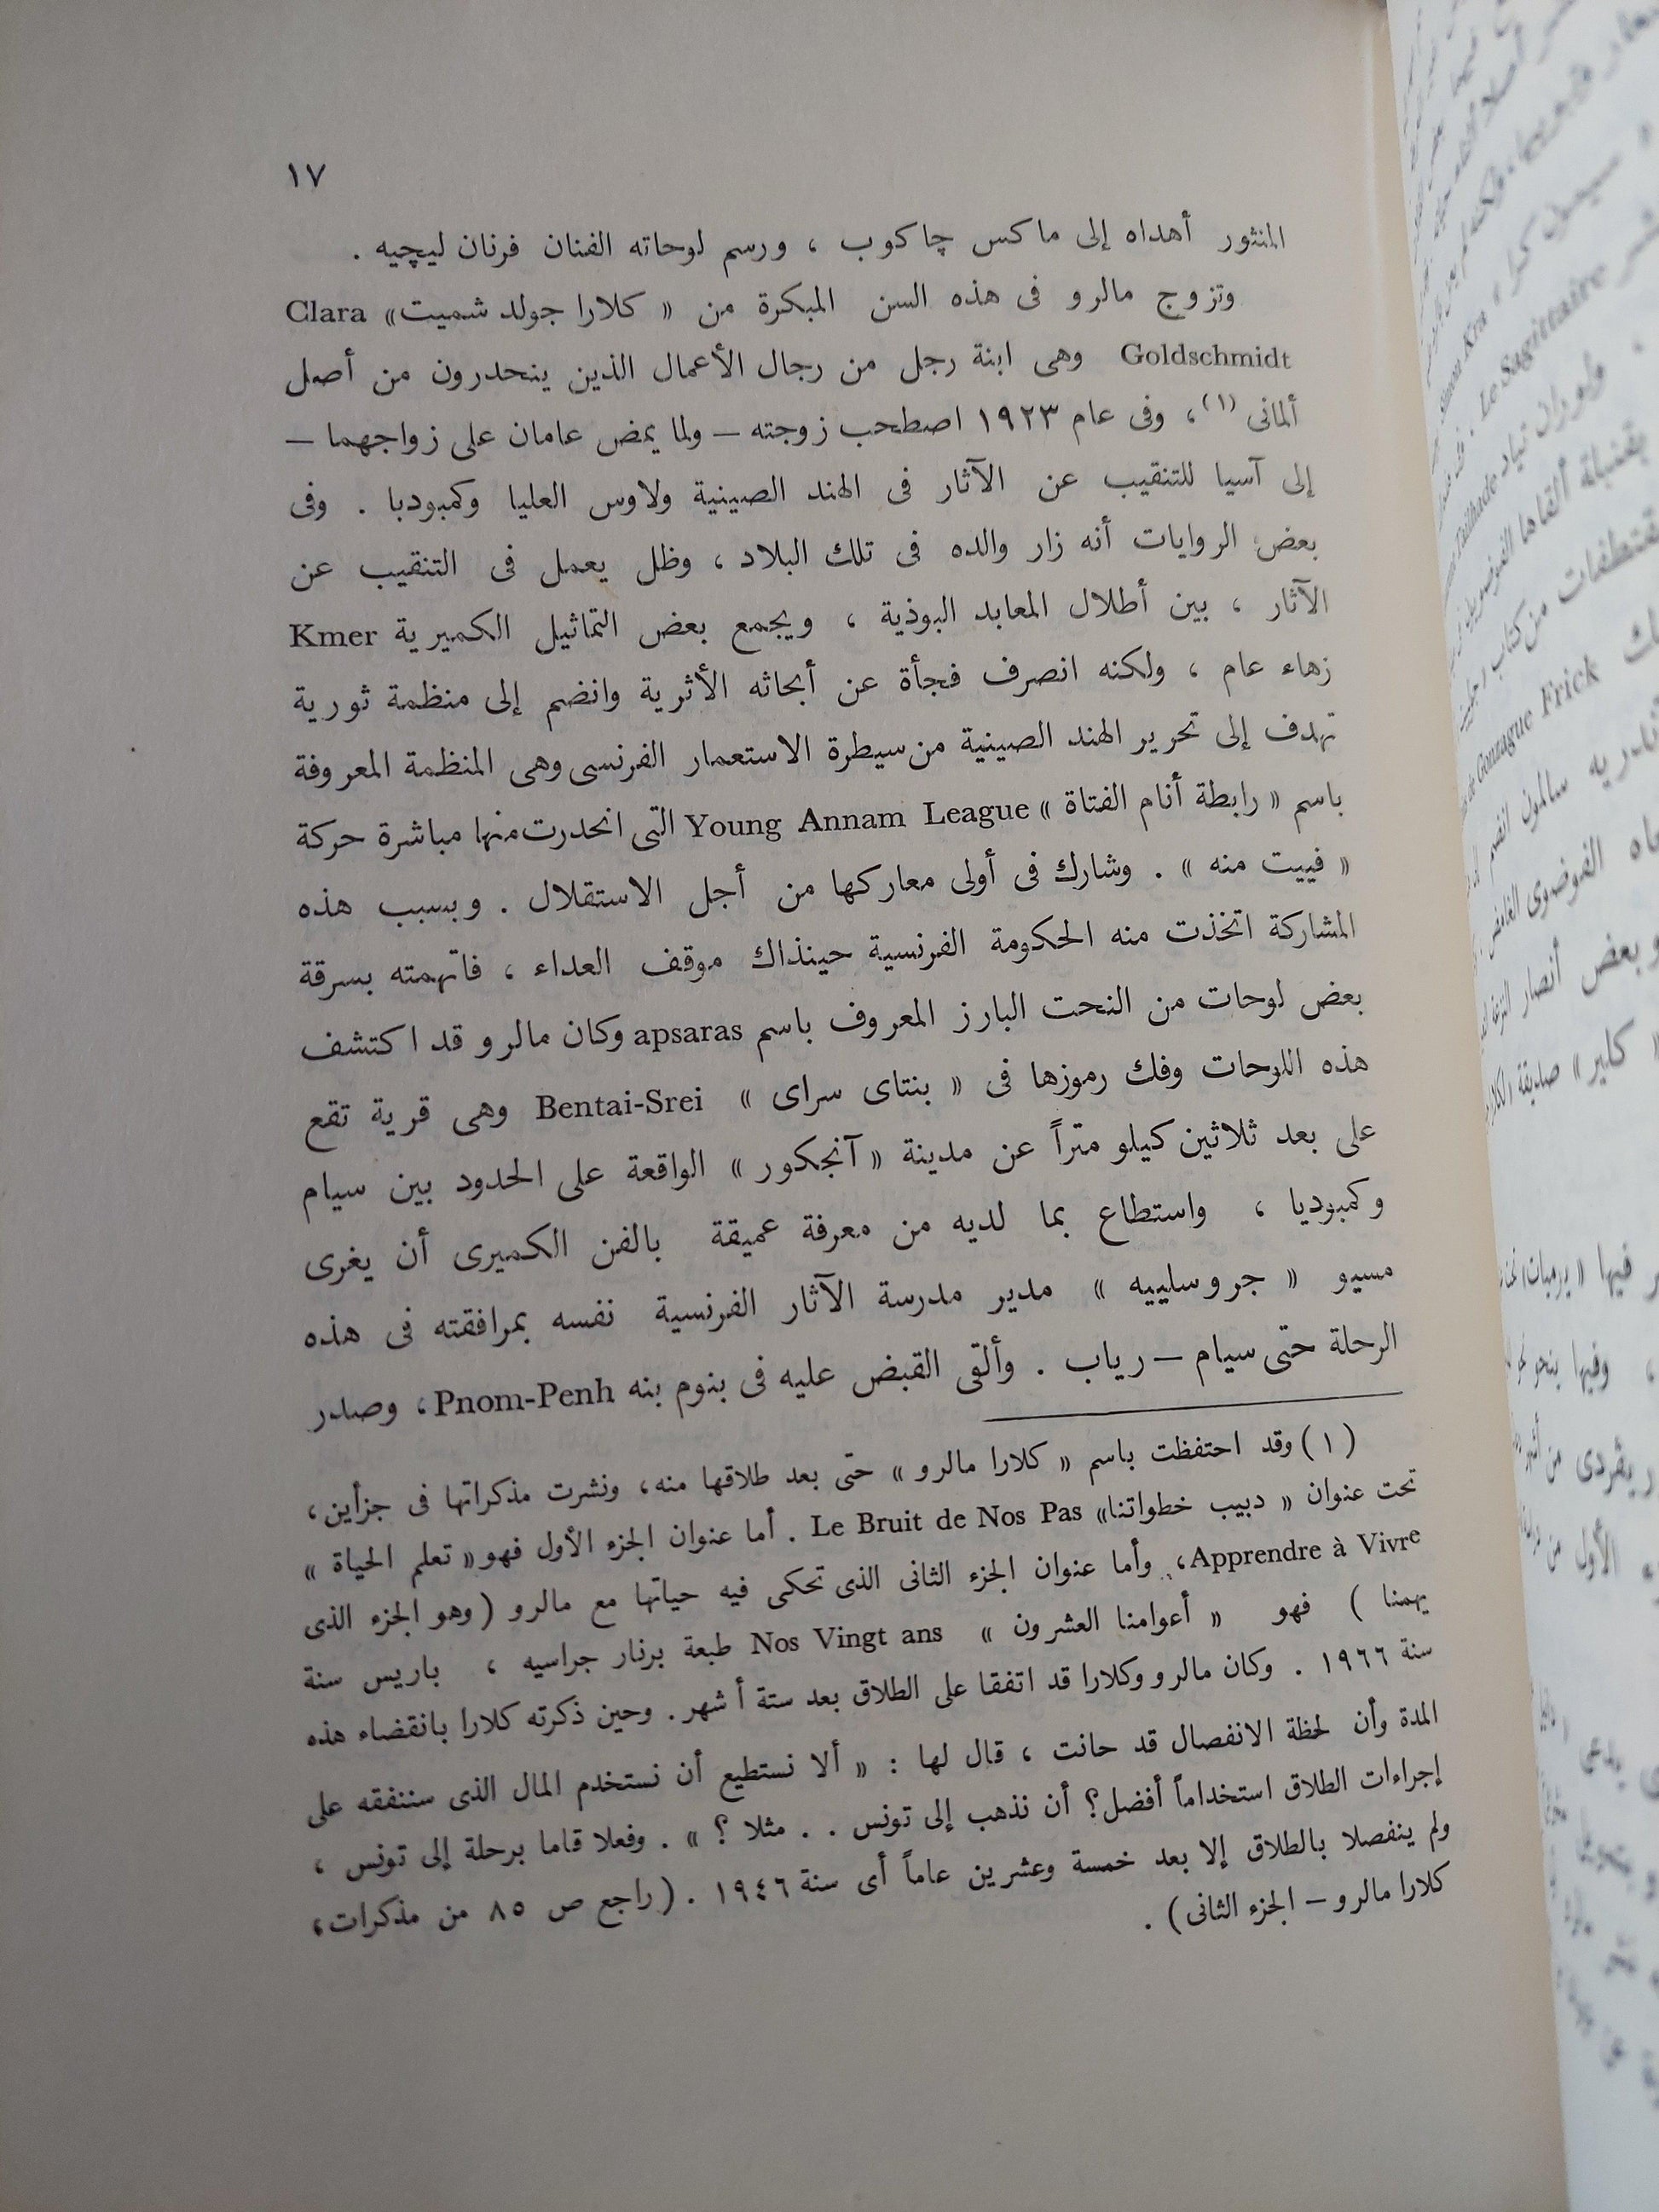 ١٧
المنثور أهداه إلى ماكس چاكوب ، ورسم لوحاته الفنان فرنان ليچيه .
وتزوج مالرو فى هذه السن المبكرة من « كلارا جولد شميت» Clara
Goldschmidt وهى ابنة رجل من رجال الأعمال الذين ينحدرون من أصل
ألمانى (١) ، وفى عام ١٩٢٣ اصطحب زوجته – ولما يمض عامان على زواجهما –
إلى آسيا للتنقيب عن الآثار فى الهند الصينية ولاوس العليا وكمبودبا . وفى
بعض الروايات أنه زار والده فى تلك البلاد ، وظل يعمل فى التنقيب عن
الآثار ، بين أطلال المعابد البوذية ، ويجمع بعض التماثيل الكميرية Kmer
زهاء عام ، ولكنه انصرف فجأة عن أبحاثه الأثرية وانضم إلى منظمة ثورية
تهدف إلى تحرير الهند الصينية من سيطرة الاستعمار الفرنسى وهى المنظمة المعروفة
باسم « رابطة أنام الفتاة » Young Annam League التى انحدرت منها مباشرة حركة
« فييت منه » . وشارك فى أولى معاركها من أجل الاستقلال . وبسبب هذه
المشاركة اتخذت منه الحكومة الفرنسية حينذاك موقف العداء ، فاتهمته بسرقة
بعض لوحات من النحت البارز المعروف باسم apsaras وكان مالرو قد اكتشف
هذه اللوحات وفك رموزها فى « بنتاى سراى » Bentai-Srei وهى قرية تقع
على بعد ثلاثين كيلو متراً عن مدينة « آنجكور » الواقعة على الحدود بين سيام
وكمبوديا ، واستطاع بما لديه من معرفة عميقة بالفن الكميرى أن يغرى
مسيو « جروسلييه » مدير مدرسة الآثار الفرنسية نفسه بمرافقته فى هذه
الرحلة حتى سيام – رياب . وألقى القبض عليه فى بنوم بنه Pnom-Penh ، وصدر
(١) وقد احتفظت باسم « كلارا مالرو » حتى بعد طلاقها منه، ونشرت مذكراتها فى جزأين،
تحت عنوان « دبيب خطواتنا» Le Bruit de Nos Pas . أما عنوان الجزء الأول فهو« تعلم الحياة »
Apprendre à Vivre، وأما عنوان الجزء الثانى الذى تحكى فيه حياتها مع مالرو (وهو الجزء الذى
يهمنا ) فهو « أعوامنا العشرون » Nos Vingt ans طبعة برنار جراسيه ، باريس سنة
سنة ١٩٦٦ . وكان مالرو وكلارا قد اتفقا على الطلاق بعد ستة أشهر. وحين ذكرته كلارا بانقضاء هذه
المدة وأن لحظة الانفصال قد حانت ، قال لها : « ألا نستطيع أن نستخدم المال الذى سننفقه على
إجراءات الطلاق استخداماً أفضل؟ أن نذهب إلى تونس . . مثلا ؟ » . وفعلا قاما برحلة إلى تونس ،
ولم ينفصلا بالطلاق إلا بعد خمسة وعشرين عاماً أى سنة ١٩٤٦ . (راجع ص ٨٥ من مذكرات،
كلارا مالرو – الجزء الثانى) .